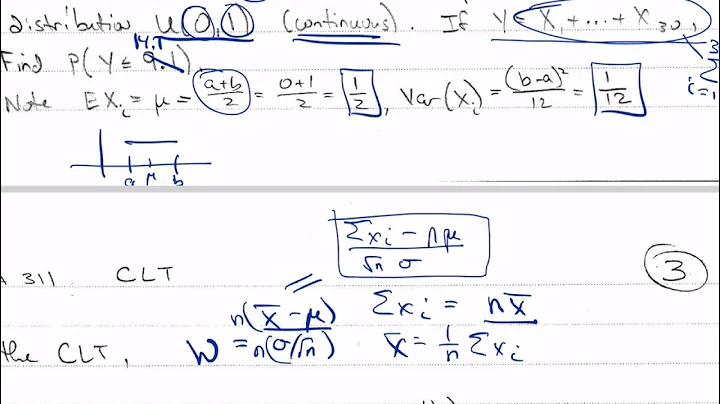 distribution U(0,1) (continuous). If Y = X₁ + ... + X₃₀,
14.1
Find P(Y ≤ 9.1).
i=1
Note EXᵢ = μ = (a+b)/2 = (0+1)/2 = 1/2, Var(Xᵢ) = (b-a)²/12 = 1/12
a μ b
(Σxᵢ - nμ)/(√n σ)
311 CLT
3
n(X̄ - μ) Σxᵢ = nX̄
the CLT, W = n(σ/√n) X̄ = 1/n Σxᵢ